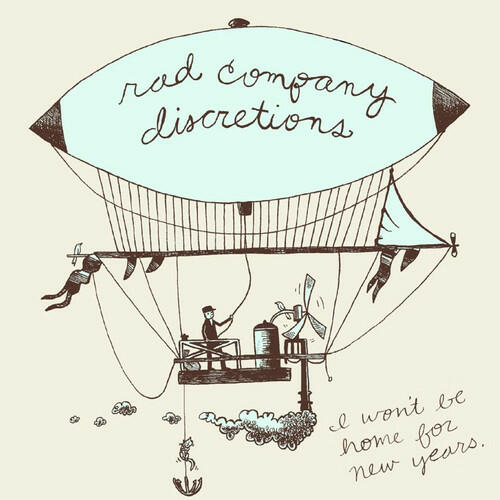 rad company
discretions
I won't be
home for
new years.